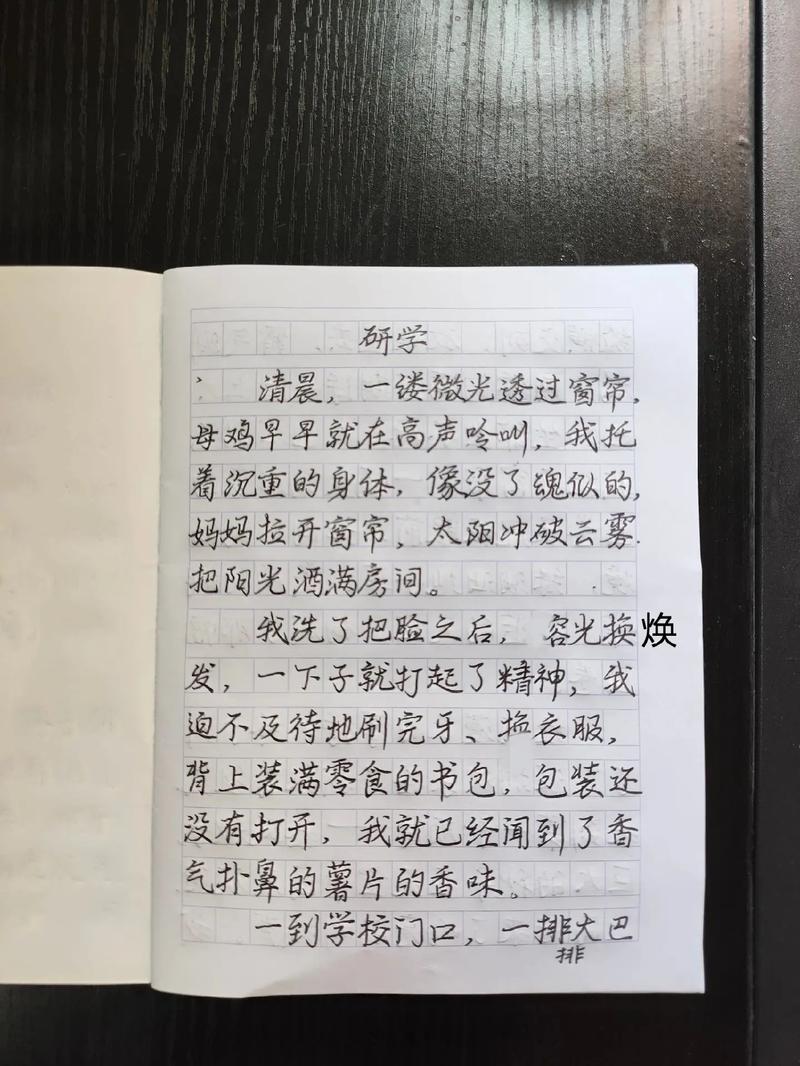 研学
清晨，一缕微光透过窗帘，
母鸡早早就在高声呤叫，我托
着沉重的身体，像没了魂似的，
妈妈拉开窗帘，太阳冲破云雾.
把阳光洒满房间。
我洗了把脸之后，容光换 焕
发，一下子就打起了精神，我
迫不及待地刷完牙、换衣服，
背上装满零食的书包，包装还
没有打开，我就已经闻到了香
气扑鼻的薯片的香味。
一到学校门口，一排大巴
排